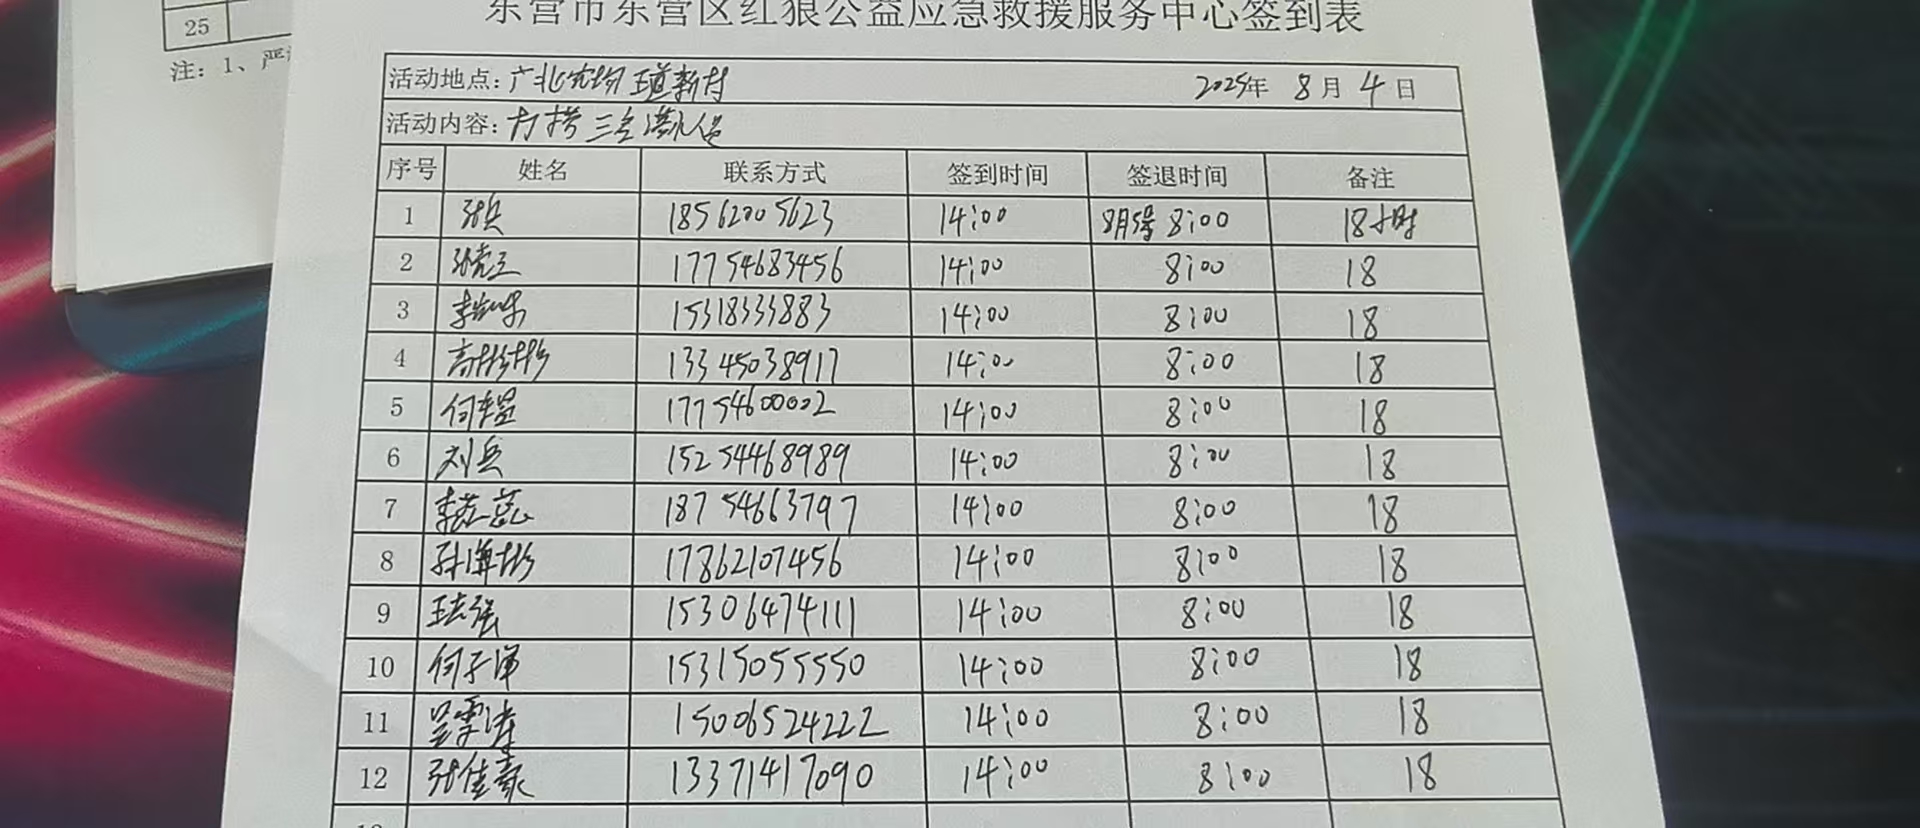 25
注：1、严
东营市东营区红狼公益应急救援服务中心签到表
活动地点：广北农场 王道新村 2025年 8月 4日
活动内容：打捞三名潜水人员
序号 姓名 联系方式 签到时间 签退时间 备注
1 张兵 18562005623 14:00 8月5号 8:00 18小时
2 17754683456 14:00 8:00 18
3 15318333883 14:00 8:00 18
4 高彬彬 13345038917 14:00 8:00 18
5 17754600002 14:00 8:00 18
6 刘兵 15254468989 14:00 8:00 18
7 18754663797 14:00 8:00 18
8 孙海彬 17862107456 14:00 8:00 18
9 王志强 15306474111 14:00 8:00 18
10 何子洋 15315055550 14:00 8:00 18
11 吴雪涛 15006524222 14:00 8:00 18
12 张佳豪 13371417090 14:00 8:00 18